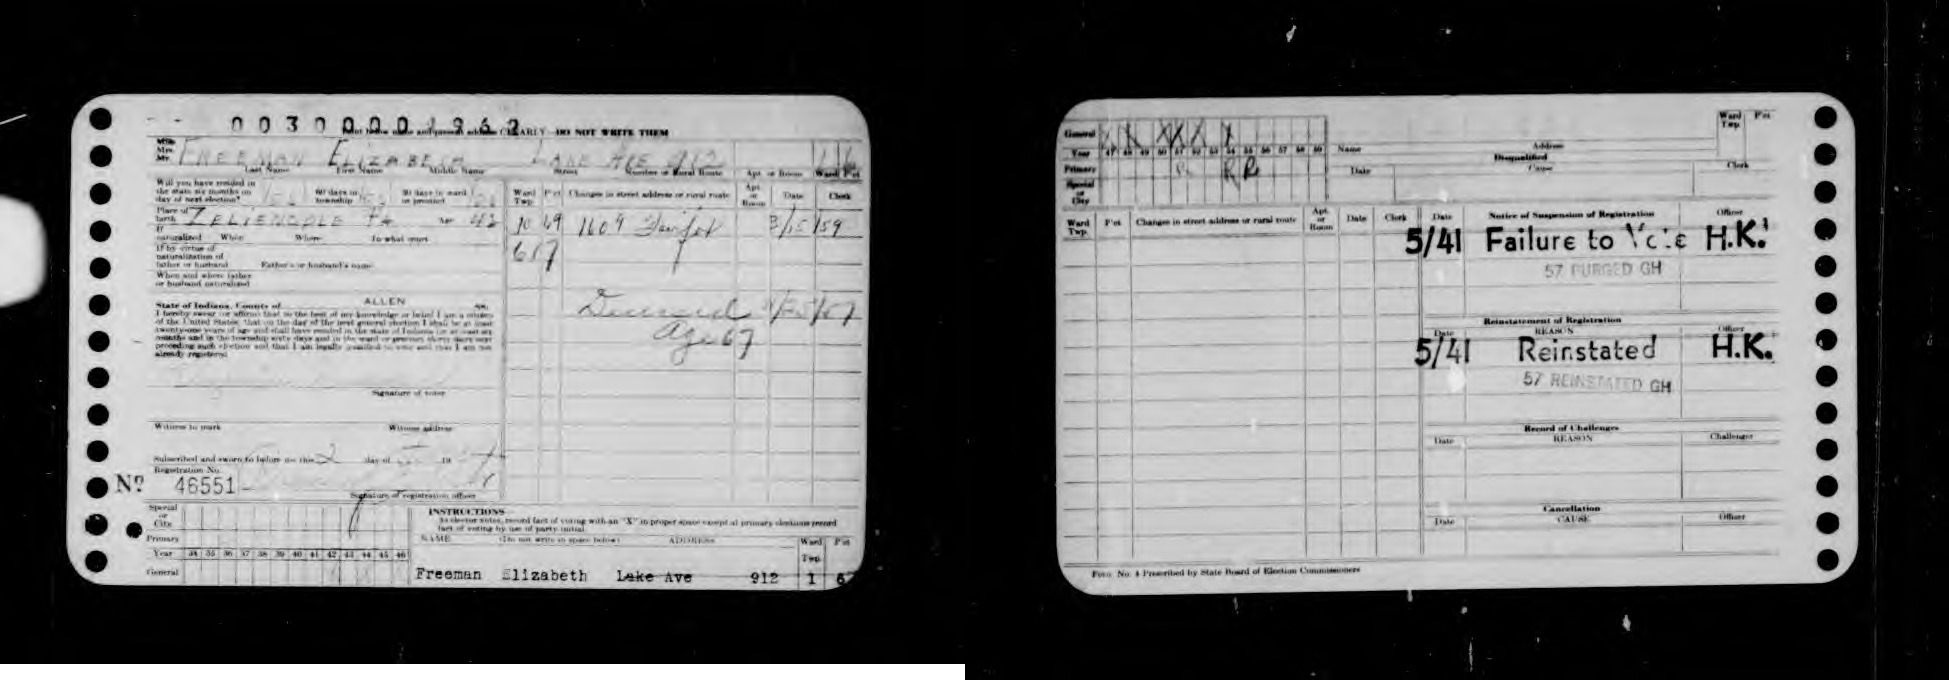 00300001962
CLEARLY DO NOT WRITE THEM
Miss
Mrs.
Mr.
FREEMAN ELIZABETH LAKE AVE 912 1 6
Last Name First Name Middle Name Street Number or Rural Route Apt. or Room Ward Pct
Will you have resided in
the state six months on
day of next election?
60 days in
township
30 days in ward
or precinct
Place of
birth ZELIENOPLE PA Age 42
If
naturalized When Where To what court
If by virtue of
naturalization of
father or husband Father's or husband's name
When and where father
or husband naturalized
State of Indiana, County of ALLEN ss.
I hereby swear (or affirm) that to the best of my knowledge or belief I am a citizen
of the United States; that on the day of the next general election I shall be at least
twenty-one years of age and shall have resided in the state of Indiana for at least six
months and in the township sixty days and in the ward or precinct thirty days next
preceding such election and that I am legally qualified to vote and that I am not
already registered.
Signature of voter
Witness to mark Witness address
Subscribed and sworn to before me this 2 day of 19
Registration No.
No 46551
Signature of registration officer
Ward
Twp. P'ct Changes in street address or rural route Apt.
or
Room Date Clerk
10 49 1609 3/15/54
617
Deceased
Age 67
Special
or
City
Primary
Year 34 35 36 37 38 39 40 41 42 43 44 45 46
General
INSTRUCTIONS
As elector votes, record fact of voting with an "X" in proper space except at primary elections record
fact of voting by use of party initial.
NAME (Do not write in space below) ADDRESS Ward
Twp. P'ct
Freeman Elizabeth Lake Ave 912 1 6
General
Year 47 48 49 50 51 52 53 54 55 56 57 58 59
Primary R R R
Special
or
City
Name Address
Ward
Twp. P'ct
Disqualified
Date Cause Clerk
Ward
Twp. P'ct Changes in street address or rural route Apt.
or
Room Date Clerk
Date Notice of Suspension of Registration Officer
5/41 Failure to Vote H.K.
57 PURGED GH
Reinstatement of Registration
Date REASON Officer
5/41 Reinstated H.K.
57 REINSTATED GH
Record of Challenges
Date REASON Challenger
Cancellation
Date CAUSE Officer
Form No. 4 Prescribed by State Board of Election Commissioners